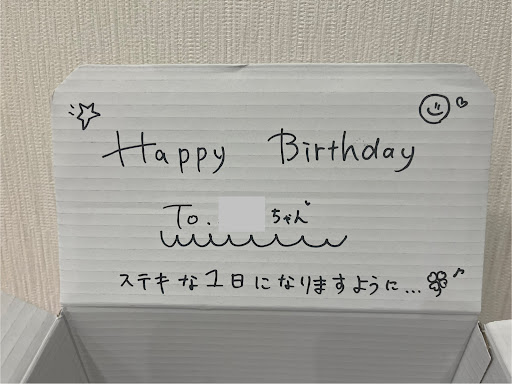 Happy Birthday
To. ちゃん
ステキな1日になりますように...